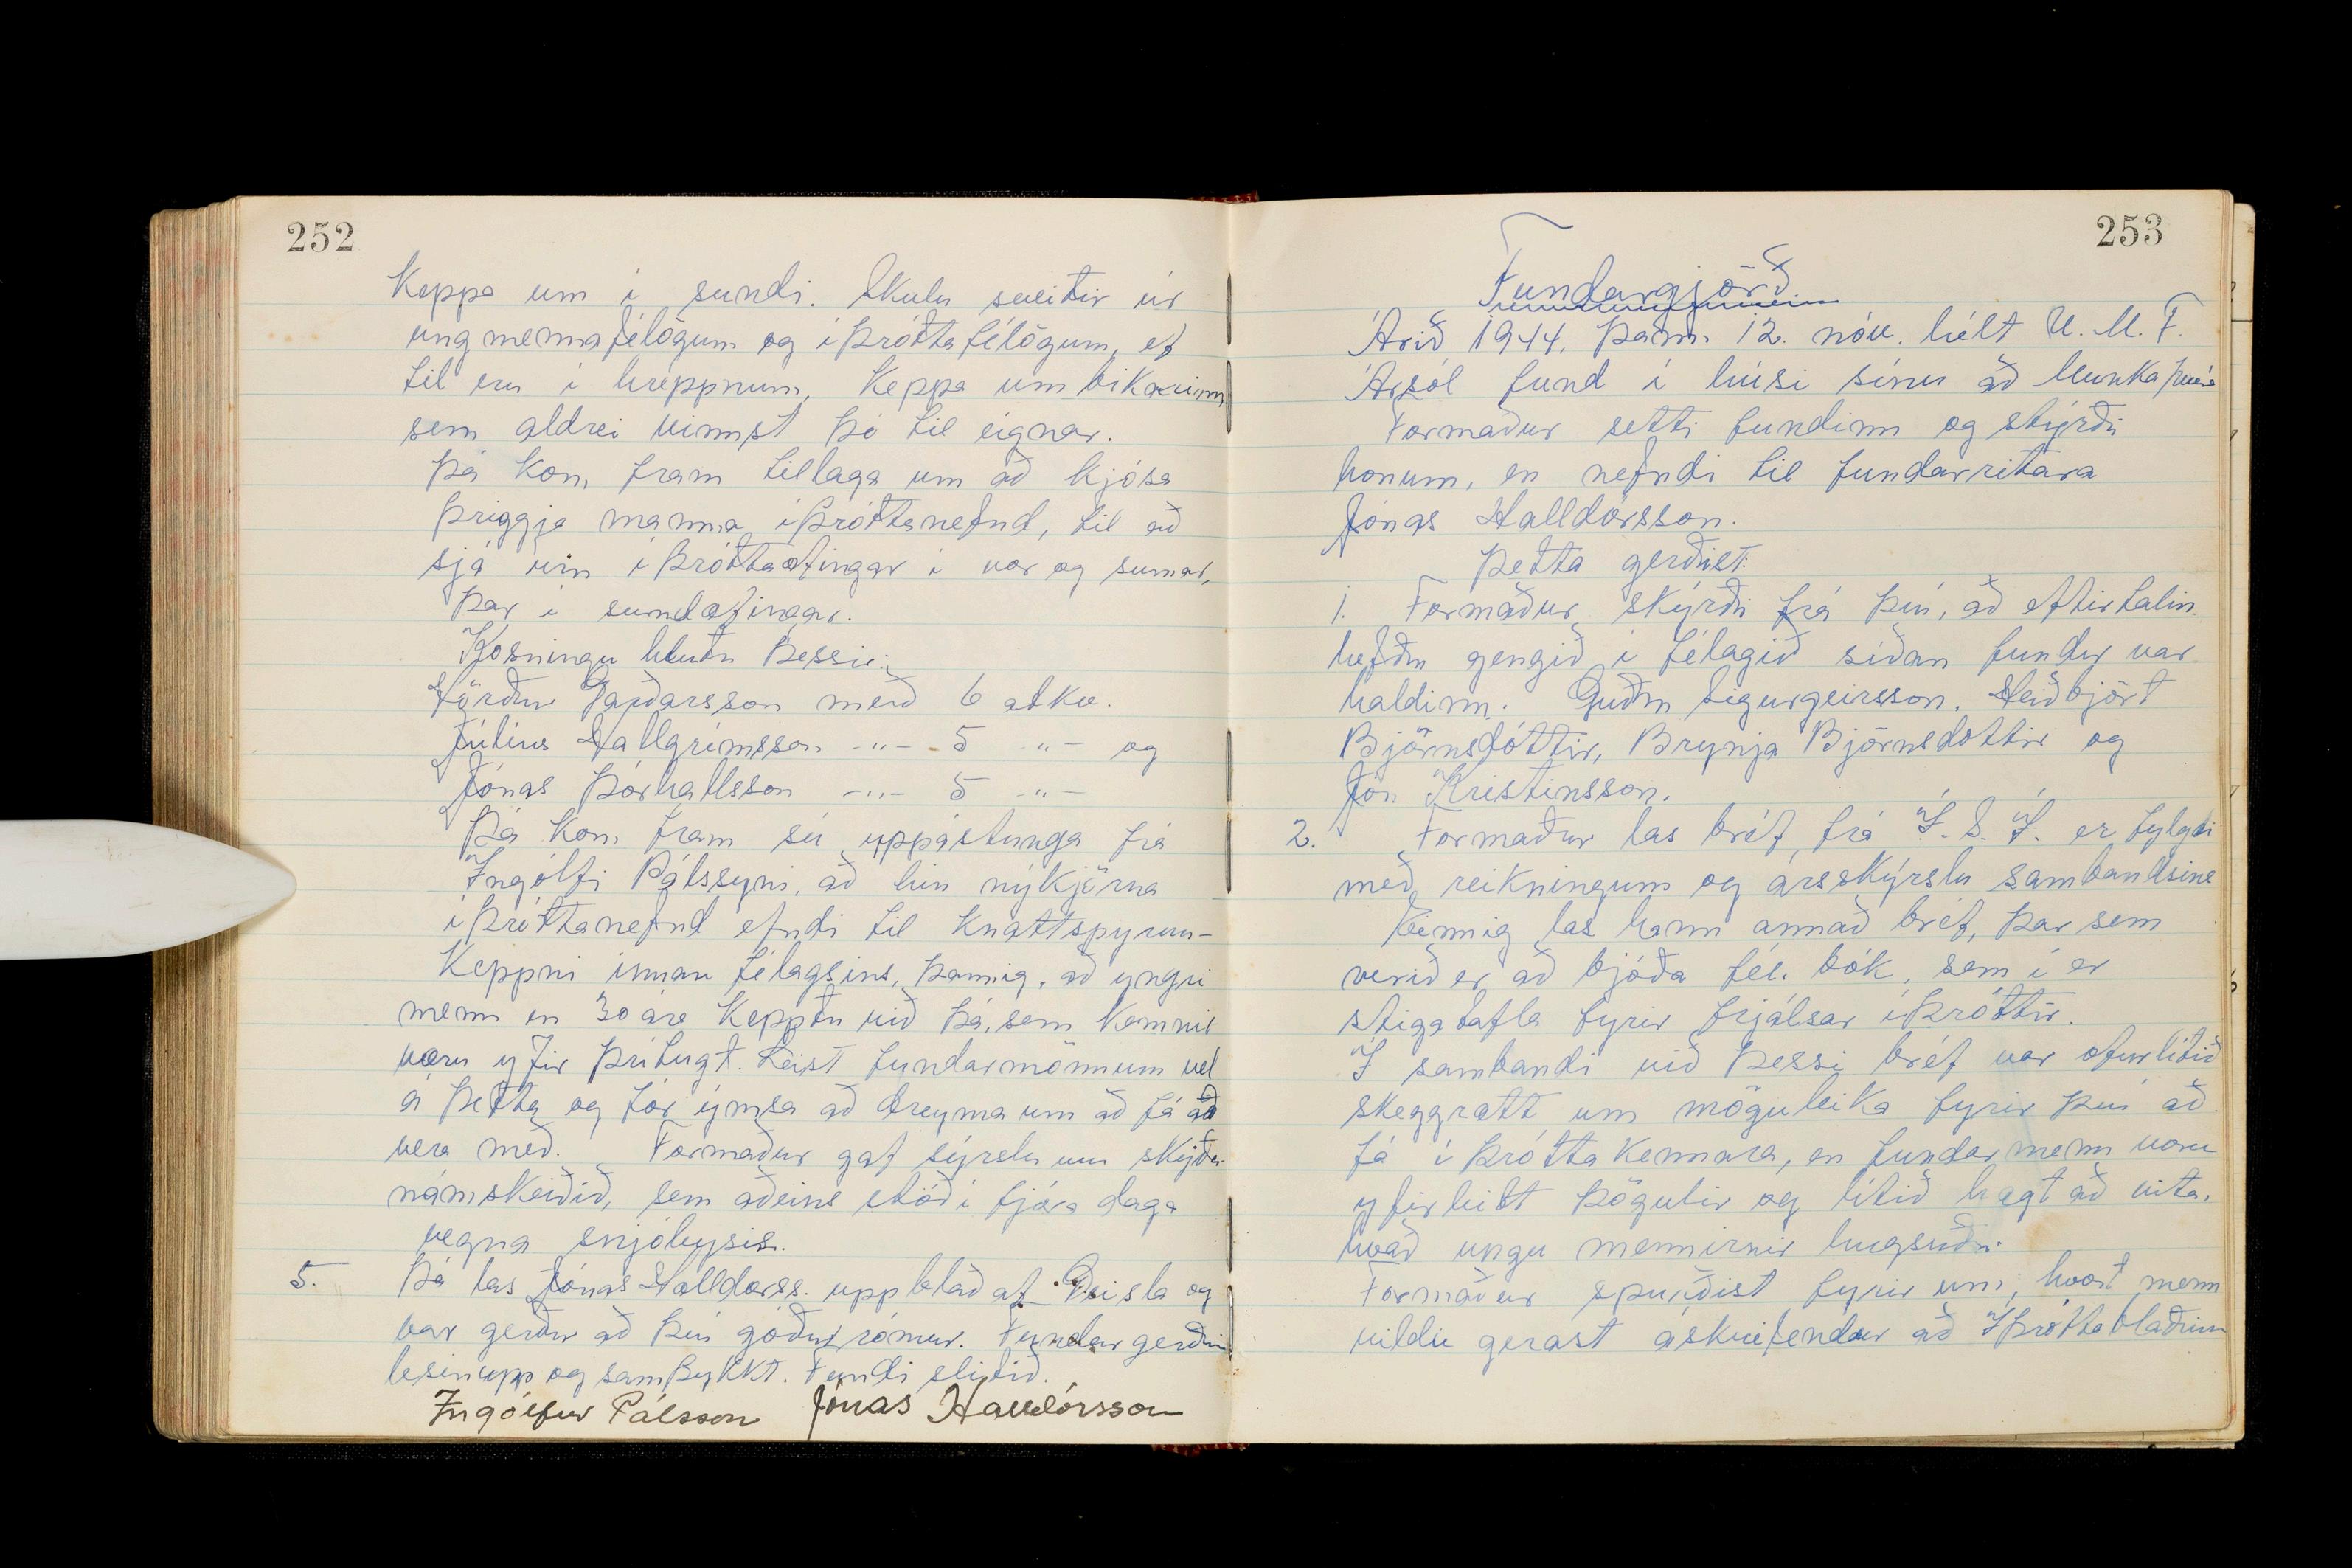 252
Keppa um í sundi. Skulu sveitir úr
ungmennafélögum og íþróttafélögum, ef
til eru í hreppnum, Keppa um bikarinn
sem aldrei vinnst þó til eignar.
Þá kom fram tillaga um að kjósa
þriggja manna íþróttanefnd, til að
sjá um íþróttaæfingar í vor og sumar,
þar í sundæfingar.
Kosningu hlutu þessir:
Hörður Garðarsson með 6 atkv.
Júlíus Hallgrímsson -"- 5 -"- og
Jónas Þórhallsson -"- 5 -"-
Þá kom fram sú uppástunga frá
Ingólfi Pálssyni, að hin nýkjörna
íþróttanefnd efndi til Knattspyrnu-
Keppni innan félagsins, þannig, að yngri
menn en 30 ára Kepptu við þá, sem Komnir
væru yfir þrítugt. Leist fundarmönnum vel
á þetta og fór ýmsa að dreyma um að fá að
vera með. Formaður gaf sýrslu um skýða
námskeiðið, sem aðeins stóð í fjóra daga
vegna snjóleysis.
5. Þá las Jónas Halldórss. upp blað af Geisla og
var gerður að því góður rómur. Fundargerðin
lesin upp og samþykkt. Fundi slitið.
Ingólfur Pálsson Jónas Halldórsson
253
Fundargjörð
Árið 1944, þann 12. nóv. hélt U. M. F.
Ársól fund í húsi sínu að Munkaþverá
Formaður setti fundinn og stýrði
honum, en nefndi til fundarritara
Jónas Halldórsson.
Þetta gerðist:
1. Formaður skýrði frá því, að eftirtalin
hefðu gengið í félagið síðan fundur var
haldinn. Guðm Sigurgeirsson. Heiðbjört
Björnsdóttir, Brynja Björnsdottir og
Jón Kristinsson.
2. Formaður las bréf, frá Í. S. Í. er fylgdi
með reikningum og ársskýrslu sambandsins
Einnig las hann annað bréf, þar sem
verið er að bjóða fél. bók, sem í er
stigatafla fyrir frjálsar íþróttir.
Í sambandi við þessi bréf var ofurlítið
skeggrætt um möguleika fyrir því að
fá íþróttakennara, en fundarmenn voru
yfirleitt þögulir og lítið hægt að vita,
hvað ungu mennirnir hugsuðu.
Formaður spurðist fyrir um, hvort menn
vildu gerast áskrifendur að Íþróttablaðinu